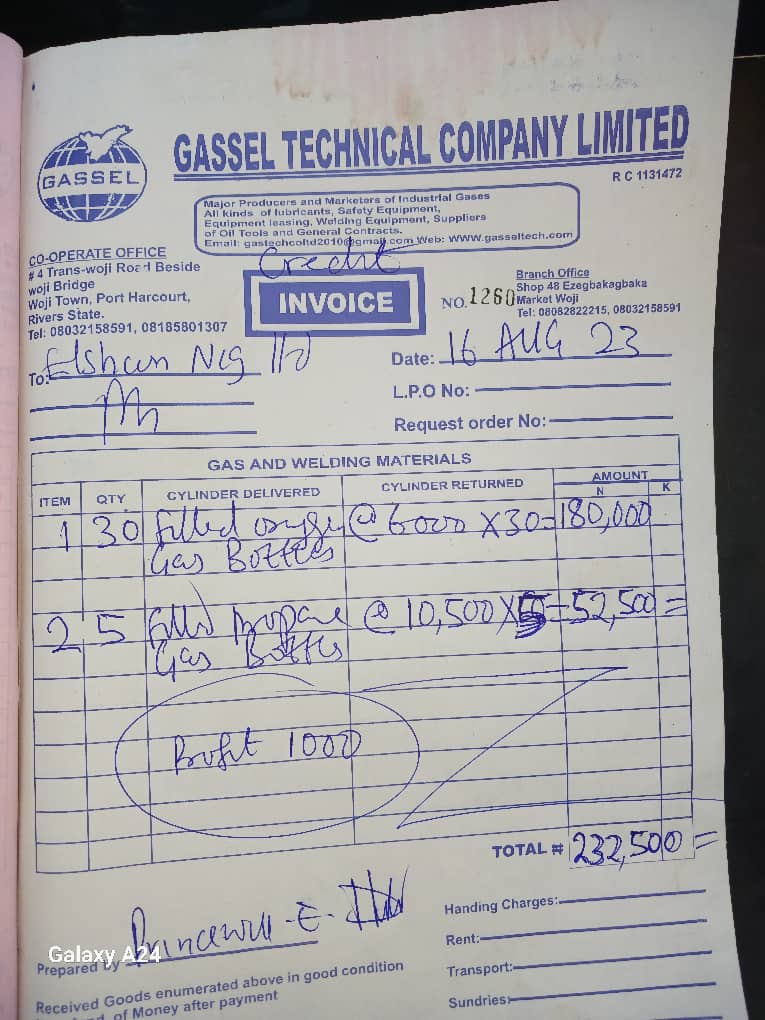 GASSEL
GASSEL TECHNICAL COMPANY LIMITED
R C 1131472
Major Producers and Marketers of Industrial Gases
All kinds of lubricants, Safety Equipment,
Equipment leasing, Welding Equipment, Suppliers
of Oil Tools and General Contracts.
Email: gastechcoltd2010@gmail.com Web: WWW.gasseltech.com
CO-OPERATE OFFICE
# 4 Trans-woji Road Beside
woji Bridge
Woji Town, Port Harcourt,
Rivers State.
Tel: 08032158591, 08185801307
Credit
INVOICE
NO. 1260
Branch Office
Shop 48 Ezegbakagbaka
Market Woji
Tel: 08082822215, 08032158591
To: Elshcon Nig ltd
Date: 16 AUG 23
L.P.O No:
Request order No:
GAS AND WELDING MATERIALS
ITEM QTY CYLINDER DELIVERED CYLINDER RETURNED AMOUNT
N K
1 30 filled oxygen @ 6000 X30=180,000
Gas Bottles
2 5 filled propane @ 10,500 X5=52,500=
Gas Bottles
Profit 1000
TOTAL # 232,500=
Prepared by Princewill - E.
Galaxy A24
Received Goods enumerated above in good condition
of Money after payment
Handing Charges:
Rent:
Transport:
Sundries: